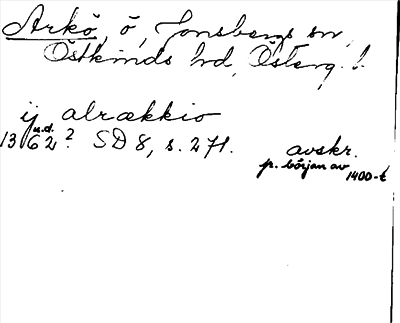 Arkö, ö, Jonsbergs sn,
Östkinds hd, Österg. l.
ij alrækkio
u.d.
1362? SD 8, s. 271.
avskr.
p. början av
1400-t